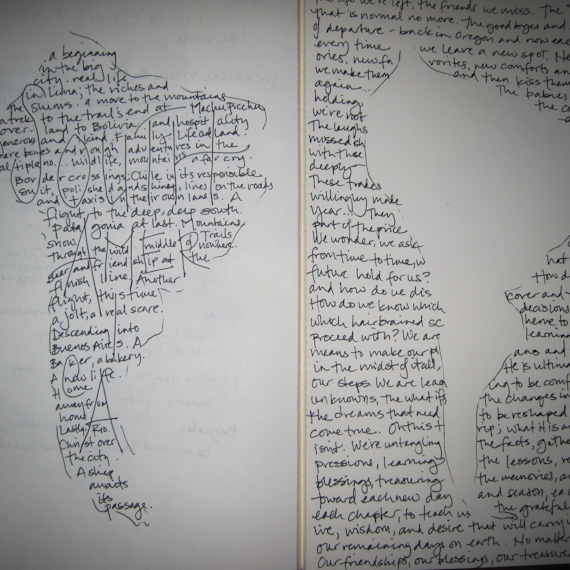 a beginning
in the big
city. real life
in Lima; the riches and
the slums. a move to the mountains
a trek to the trail's end at Machu Picchu
over. land to Bolivia and hospitality
generous and kind. Family. Life at land.
bare bones and rough adventures in the
altiplano. Wildlife, mountains afar cry.
Border crossings. Chile in its responsible
suit, polished and shiny, lines on the roads
and taxis in their own lanes. A
flight to the deep, deep south.
Patagonia at last. Mountains,
snow
Trails
through the wild middle of nowhere.
Beer and friendship at the
finish line. Another
flight, this time
a jolt, a real scare.
Descending into
Buenos Aires. A
Baker, a bakery.
A new life.
Home
away from
home
Lastly Rio.
Christ over
the city.
A ship
awaits
its
passage.
we left. the friends we miss. The
that is normal no more. The goodbyes and
of departure - back in Oregon and now
every time we leave a new spot.
ories, new fa vorites, new comforts an
we make them and then kiss them
again. The babies
holding the c
we're not
The laughs
missed by
with those
deeply
These trades
willingly made
year. They
part of the price
We wonder, we ask
from time to time, w
future hold for us? hat
and how do we dis How do
How do we know which cover and
Which hairbrained sc decisions
Proceed with? We are home to
means to make our pl learning
in the midst of it all, ans and
our steps. We are lead He is ultima
unknowns, the what ifs ing to be comf
the dreams that need the changes in
come true. Oh this t to be reshaped
isn't. We're untangling rip; what it is a
pressions, learning the facts, gathe
blessings, treasuring the lessons, re
toward each new day the memories, a
each chapter, to teach us and season, ea
the grateful
ive, wisdom, and desire that will carry
our remaining days on earth. No matter
Our friendships, our blessings, our treasure